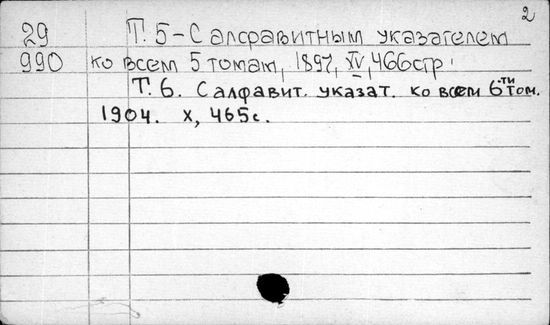 2
29 Т. 5 - С алфавитным указателем
990 ко всем 5 томам, 1897, XV, 466стр.
Т. 6. С алфавит. указат. ко всем 6-ти том.
1904. X, 465 с.